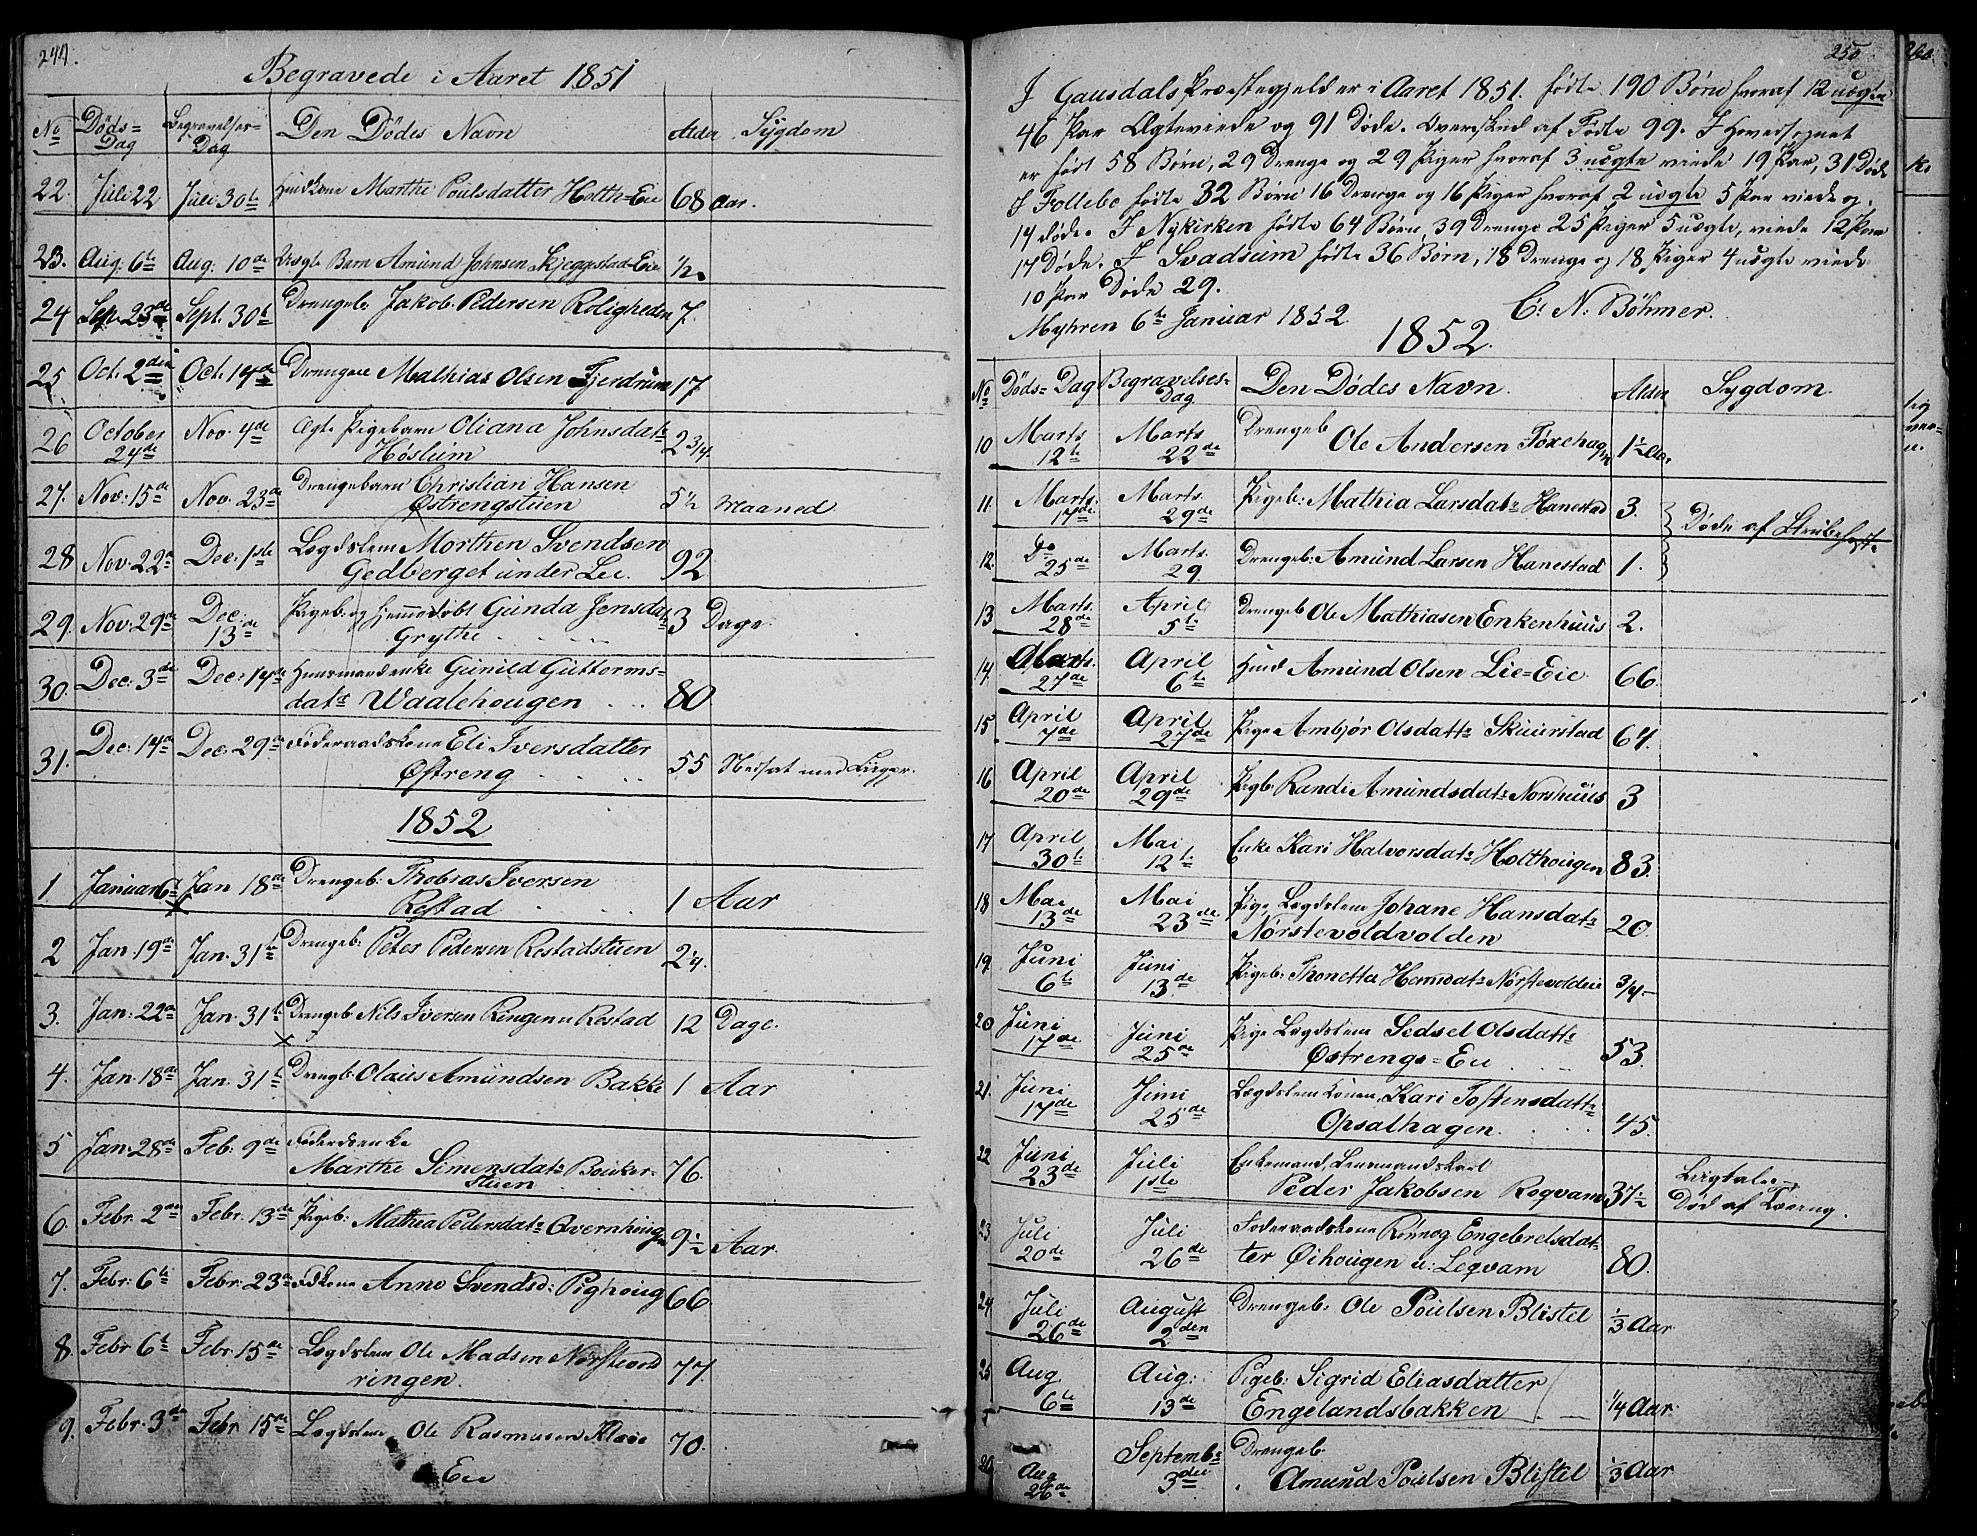 249.
Begravede i Aaret 1851
No Döds=Dag Begravelses=Dag Den Dödes Navn Alder Sygdom
22. Juli 22 Juli 30te Huuskone Marthe Poulsdatter Holth=Eie 68 Aar.
23. Aug. 6te Aug. 10de Uægte Barn Amund Johnsen Skjeggestad=Eie 1/2
24 Sept. 23de Sept. 30te Drengeb. Jakob Pedersen Roligheden 7.
25 Oct. 2den Oct. 14de Drengen Mathias Olsen Fjerdrum 17
26 October Nov. 4de Ægte Pigebarn Oliana Johnsdatr
24de Höslum 2 3/4
27. Nov. 15de Nov. 23de Drengebarn Christian Hansen
Østrengstuen 5 1/2 Maaned
28 Nov. 22de Dec. 1ste Lægdslem Morthen Svendsen
Gedberget under Lie. 92
29. Nov. 29de Dec. Pigeb. og hjemmedöbt Gunda Jensdatr
13de Grythe 3 Dage
30. Dec. 3de Dec. 14de Huusmandenke Gunild Guttorms=
datr Waalehougen 80
31. Dec. 14de Dec. 29de Föderaadskone Eli Iversdatter
Østreng 55
1852
1 Januar 6te Jan 18de Drengeb: Thobias Iversen
Restad 1 Aar
2 Jan. 19de Jan. 31te Drengeb: Peter Pedersen Restadstuen 2 1/4.
3. Jan. 22de Jan. 31te Drengeb Nils Iversen Ringen u Restad 12 Dage.
4. Jan. 18de Jan. 31te Drengb: Olaus Amundsen Bakke 1 Aar
5 Jan. 28de Feb. 9de Föderdsenke
Marthe Simensdatr Bouker=
stuen 76.
6. Febr. 2den Febr. 13de Pigeb: Mathea Pedersdatr Qvernhoug 9 1/2 Aar
7. Febr. 6te Febr. 23de Fdkone Anne Svendsd: Pighoug 66
8. Febr 6te Febr. 15de Lægdslem Ole Madsen Nørstevold
ringen. 77.
9. Febr. 3de Febr 15de Lægdslem Ole Rasmusen
Eie 70.
250
I Gausdals Præstegjeld er i Aaret 1851. födte 190 Börn hvoraf 12 uægte
46 Par Ægteviede og 91 Döde. Overskud af Födte 99. I Hovedsognet
er födt 58 Börn, 29 Drenge og 29 Piger hvoraf 3 uægte viede 19 Par, 31 Döde
I Follebo födte 32 Börn 16 Drenge og 16 Piger hvoraf 2 uægte 5 Par viede og
14 döde. I Nykirken födte 64 Börn, 39 Drenge 25 Piger 5 uægte, viede 12 Par
17 Döde. I Svadsum födte 36 Börn, 18 Drenge og 18 Piger 4 uægte viede
10 Par Döde 29.
Myhren 6te Januar 1852. C. N. Böhmer.
1852.
No Döds=Dag Begravelses=Dag Den Dödes Navn. Alder Sygdom
10 Marts Marts Drengeb
12te 22de Ole Andersen 1 1/2 Aar
11. Marts. Marts. Pigeb: Mathia Larsdatr Hanestad 3. Döde af Strubehoste
17de 29de
12. Do Marts. Drengeb: Amund Larsen Hanestad 1.
25de 29
13 Marts. April Drengeb Ole Mathiasen Enkenhuus 2.
28de 5te
14. Marts. April Huusd Amund Olsen Lie=Eie 66.
27de 6te
15 April April Pige Ambjör Olsdattr Skuurstad 64.
7de 27de
16 April April Pigb. Randi Amundsdatr Norshuus 3
20de 29de
17 April Mai Enke Kari Halvorsdatr Holthougen 83.
30te 12te
18 Mai Mai Pige Lægdslem Johane Hansdatr
13de 23de Nørstevoldvolden 20.
19. Juni Juni Pigeb: Thonette Hansdatr Nørstevoldeie 3/4
6te 13de
20 Juni Juni Pige Lægdslem Sedsel Olsdattr
17de 25de Østrengs=Eie 53.
21. Juni Juni Lægdslem Konen, Kari Tostensdattr
17de 25de Opsalhagen. 45.
22 Juni Juli Enkemand, Lensmandskarl
23de 1ste Peder Jakobsen Roqvam 37 1/2 Død af Tæring.
23. Juli Juli Föderaadskone Rönnog Engebretsdat=
20de 26de ter Øihougen u: Leqvam 80.
24. Juli August Drengeb: Ole Poulsen Blistel 1/3 Aar
26de 2den
25 Aug. Aug: Pigeb: Sigrid Eliasdatter
6te 13de Engelandsbakken 1/4 Aar
26 Aug Septembr Drengeb.
26de 3die Amund Poulsen Blistel 1/3 Aar